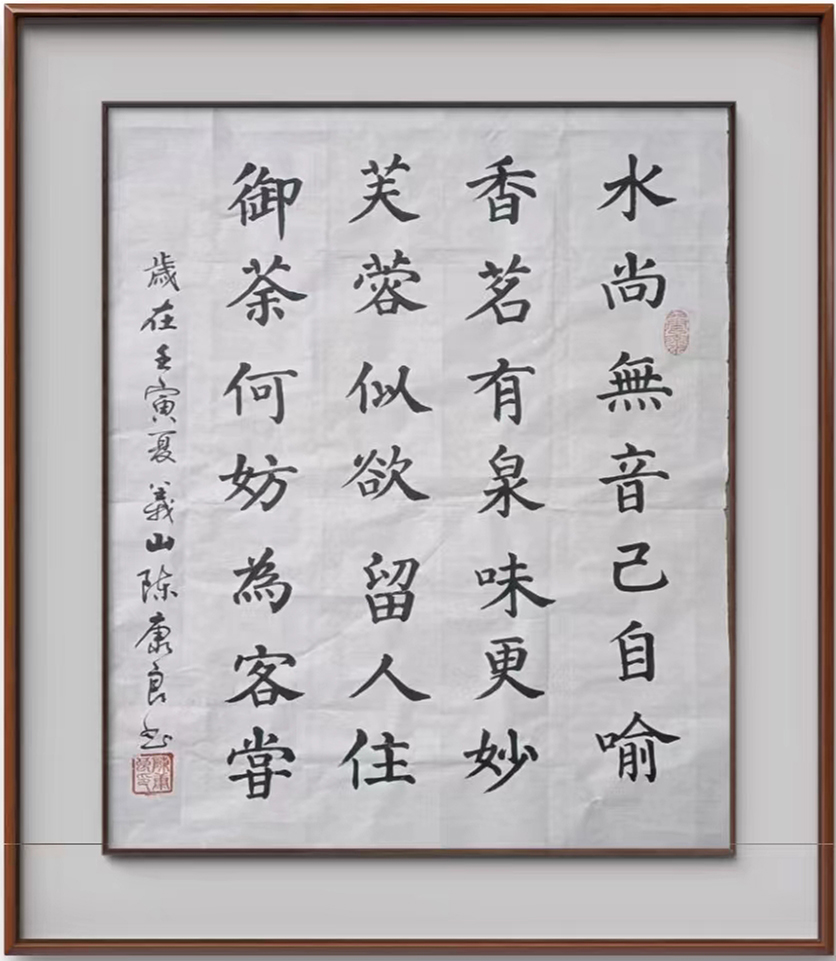 水尚無音己自喻
香茗有泉味更妙
芙蓉似欲留人住
御荼何妨為客嘗
歲在壬寅夏義山陈康良书
陳康良印